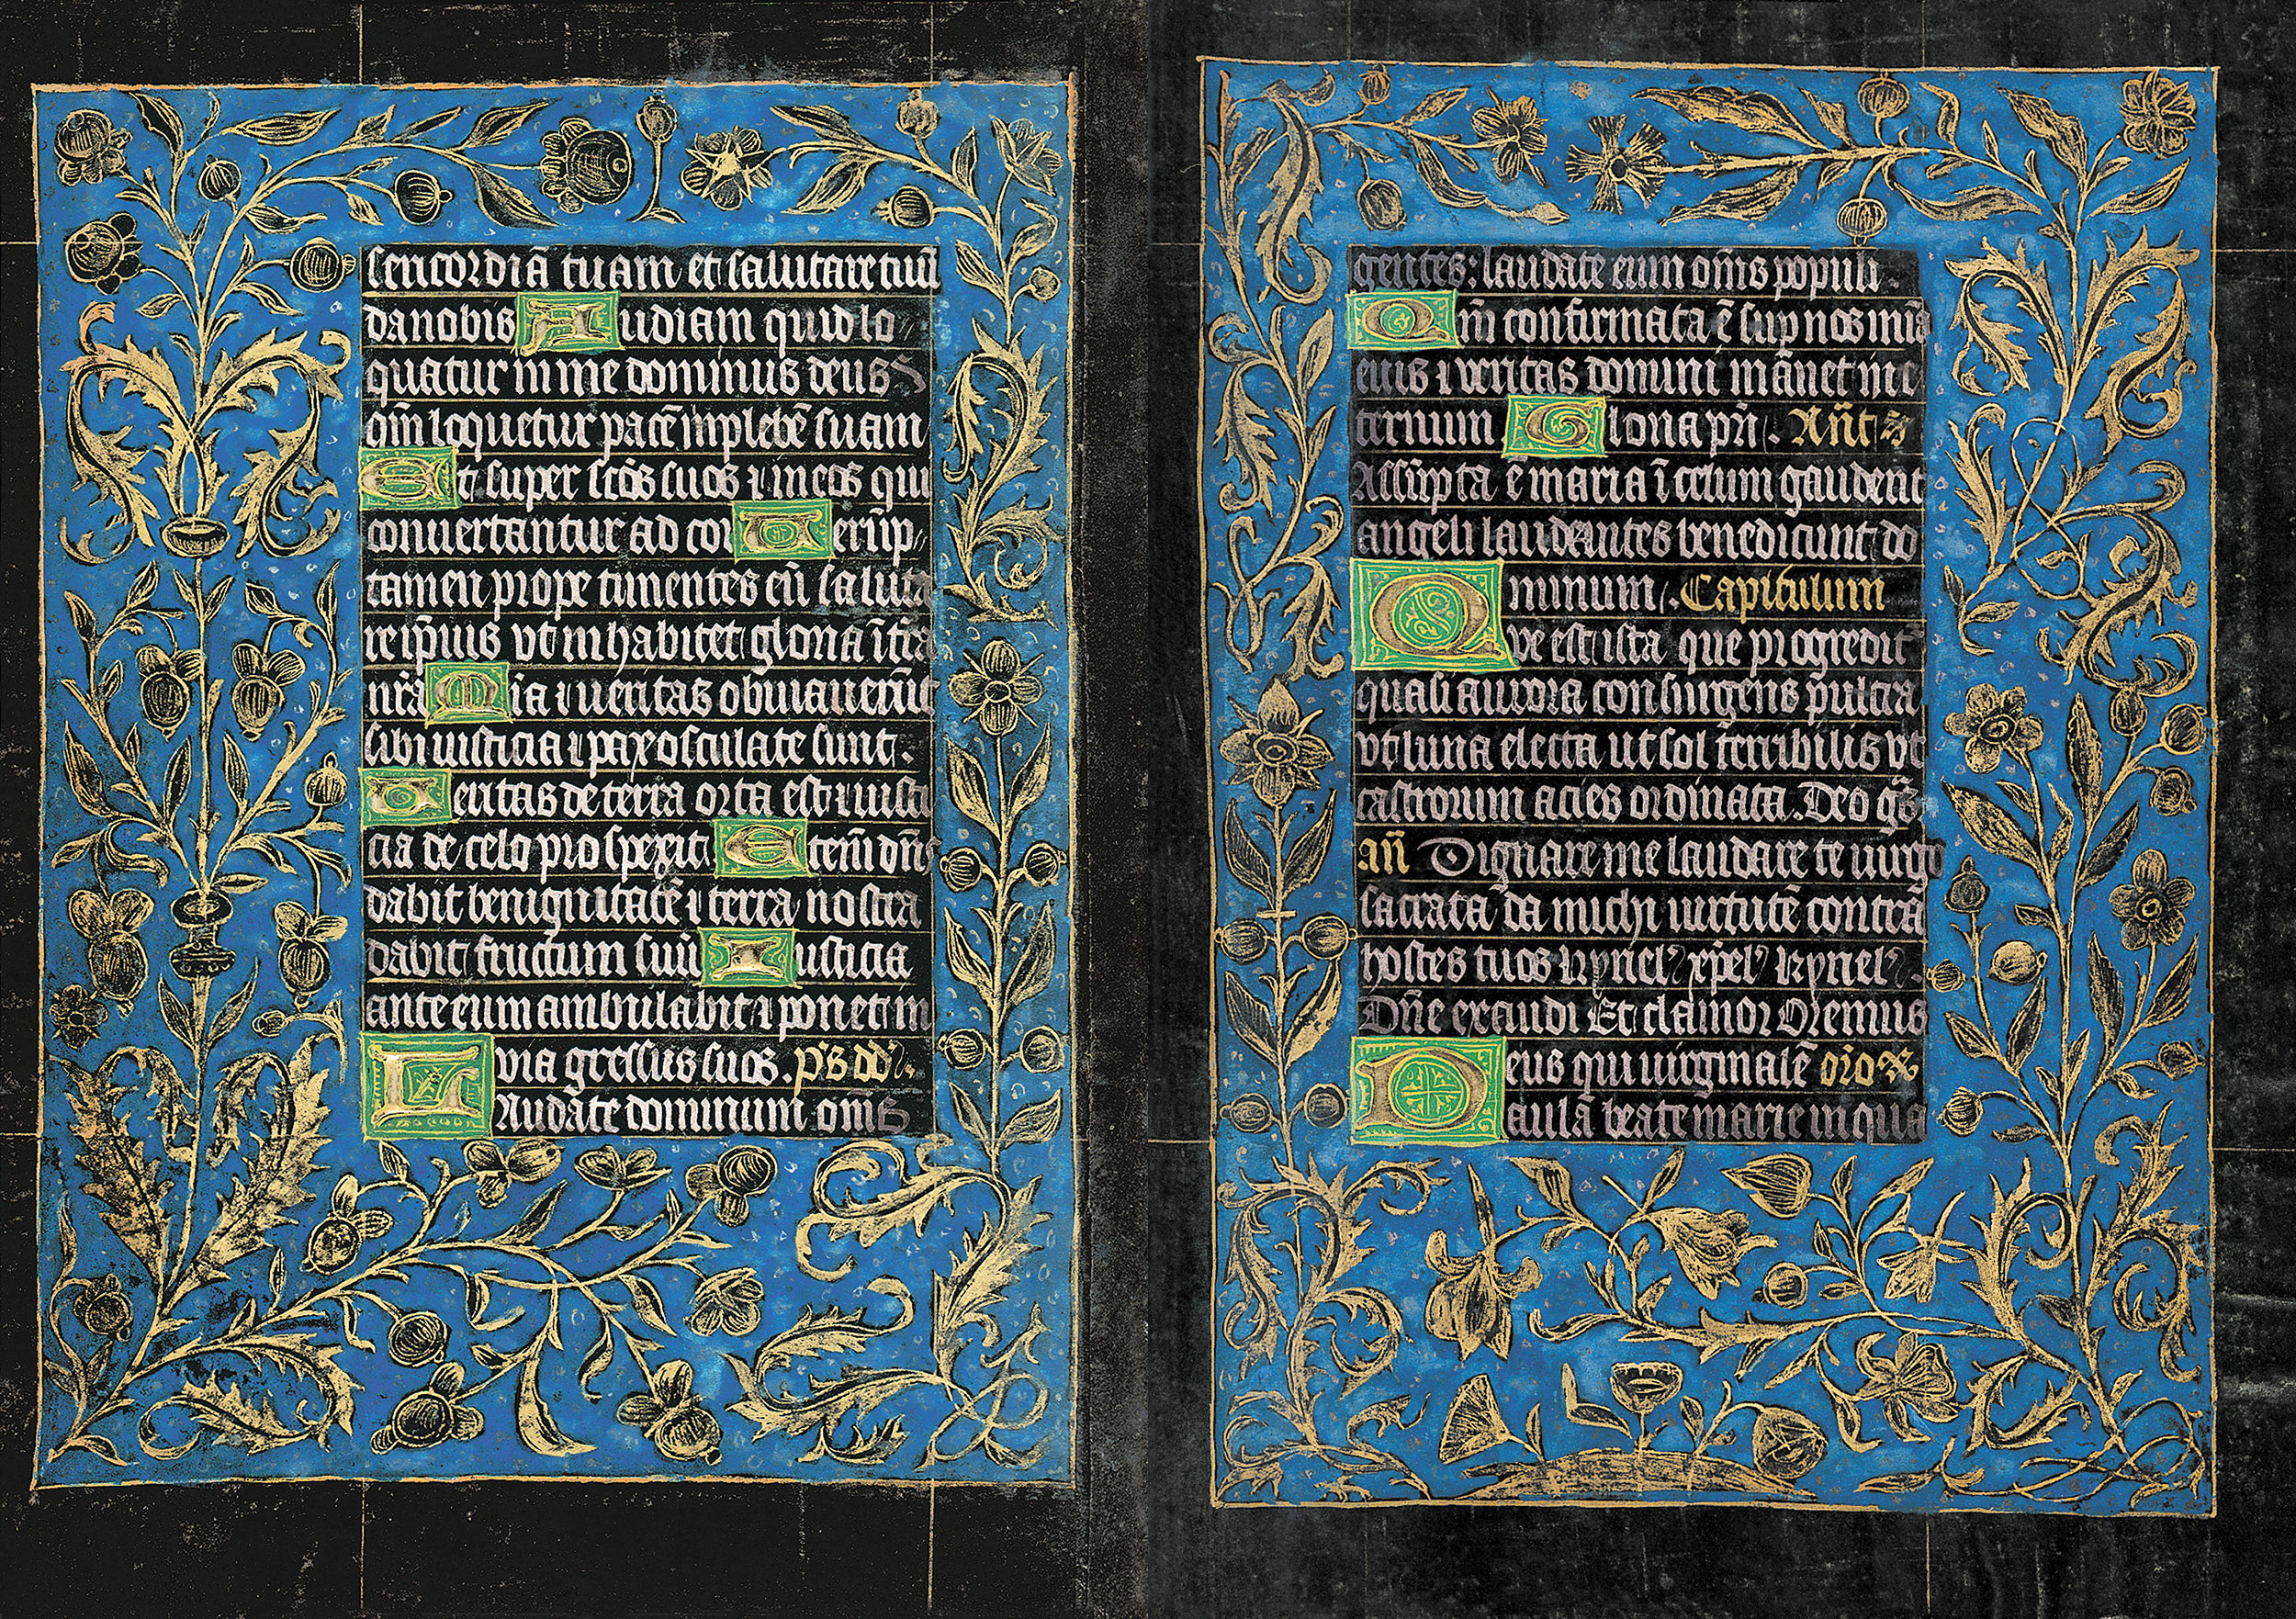 sericordiã tuam et salutare tuũ
da nobis Audiam quid lo
quatur in me dominus deus
qm̃ loquetur pacẽ in plebẽ suam
Et super sc̃os suos ⁊ in eos qui
convertantur ad cor Verũp
tamen prope timentes eũ saluta
re ip̃ius vt inhabitet gloria ĩ t̃ra
nr̃a Mĩa ⁊ veritas obviaverũt
sibi iusticia ⁊ pax osculate sunt.
Veritas de terra orta est ⁊ iusti
cia de celo prospexit Etem̃ dñs
dabit benignitatẽ ⁊ terra nostra
dabit fructum suũ Iusticia
ante eum ambulabit ⁊ ponet in
via gressus suos. p̃s dd̃.
Laudate dominum om̃s
gentes: laudate eum om̃s populi.
Qm̃ confirmata ẽ sup nos mĩa
eius ⁊ veritas domini mãnet in e
ternum Gloria pr̃i. Añt
Assũpta ẽ maria ĩ celum gaudent
angeli laudantes benedicunt do
minum. Capitulum
Que est ista que progredit̃
quasi aurora consurgens pulcra
vt luna electa ut sol terribilis vt
castrorum acies ordinata. Deo gr̃s
añ Dignare me laudare te virgo
sacrata da michi virtutẽ contra
hostes tuos kyriel' xp̃el' kyriel'.
Dñe exaudi Et clamor Oremus
Deus qui virginalẽ or̃o
aulã beate marie in qua